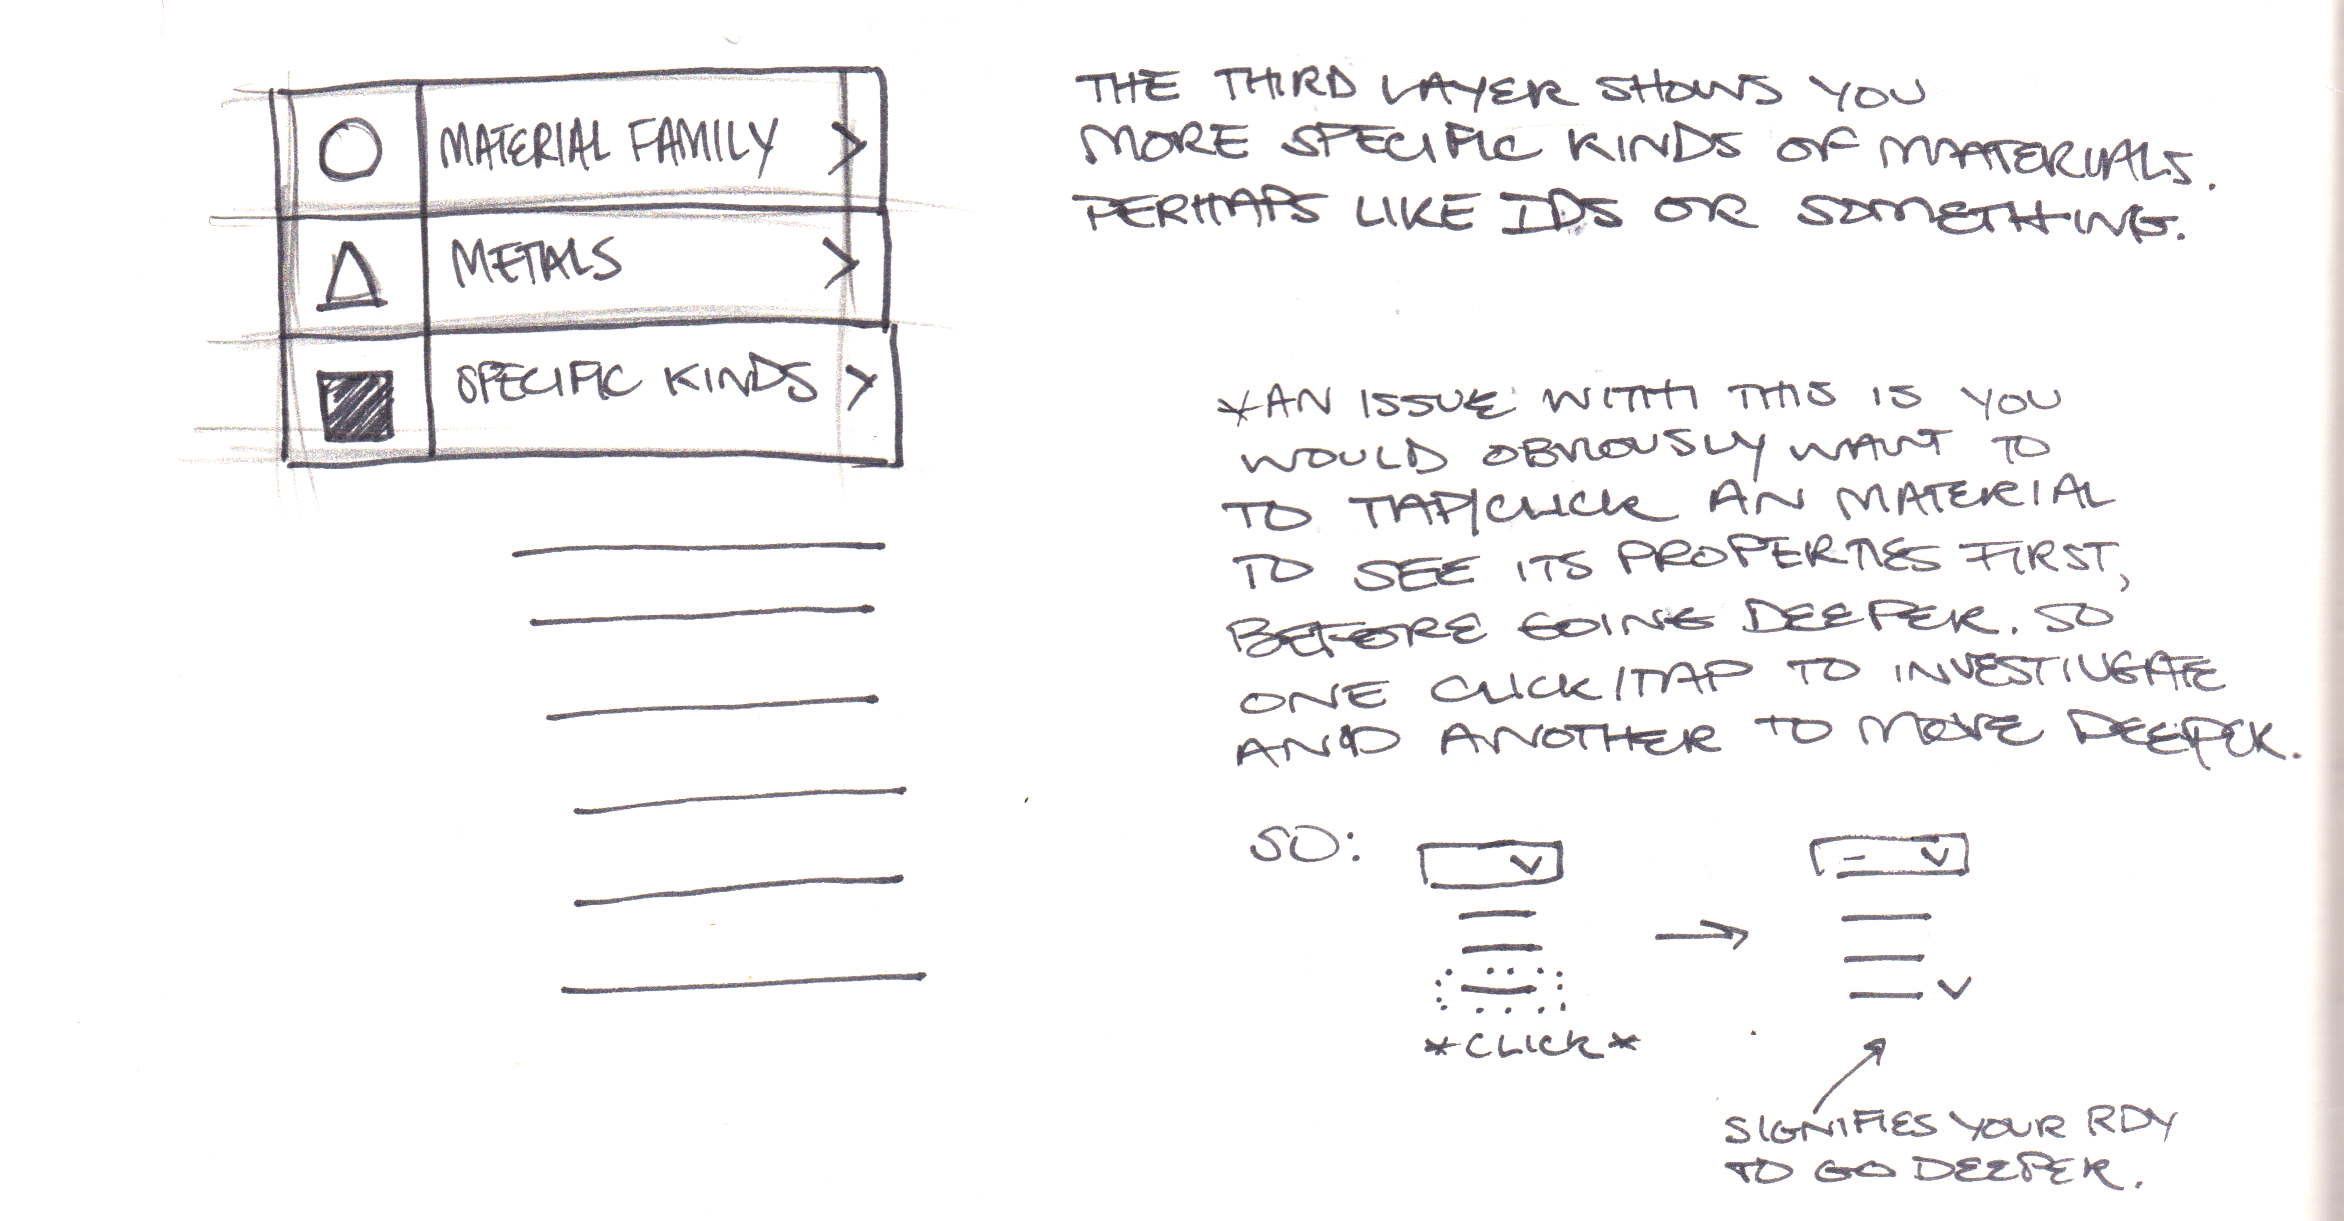 MATERIAL FAMILY >
METALS >
SPECIFIC KINDS >
THE THIRD LAYER SHOWS YOU
MORE SPECIFIC KINDS OF MATERIALS.
PERHAPS LIKE IDS OR SOMETHING.
*AN ISSUE WITH THIS IS YOU
WOULD OBVIOUSLY WANT TO
TO TAP/CLICK AN MATERIAL
TO SEE ITS PROPERTIES FIRST,
BEFORE GOING DEEPER. SO
ONE CLICK/TAP TO INVESTIUGATE
AND ANOTHER TO MOVE DEEPER.
SO:
*CLICK*
SIGNIFIES YOUR RDY
TO GO DEEPER.